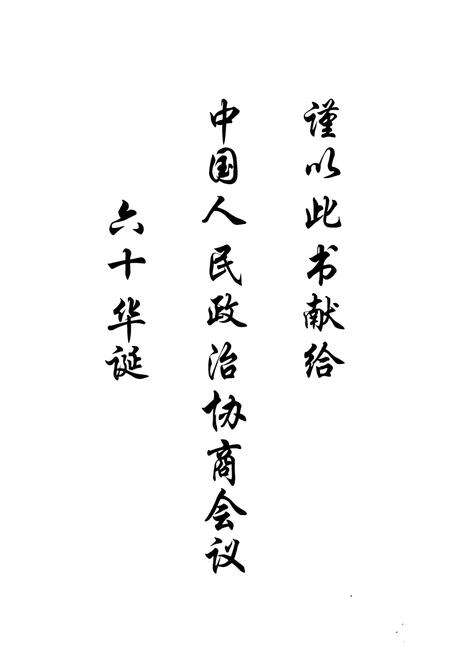 谨以此书献给
中国人民政治协商会议
六十华诞